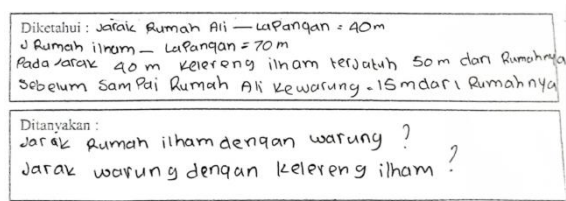 Diketahui : Jarak Rumah Ali — Lapangan = 40m
J Rumah ilham — Lapangan = 70 m
Pada Jarak 40 m kelereng ilham terjatuh 50 m dari Rumahnya
Sebelum Sampai Rumah Ali kewarung = 15 m dari Rumahnya
Ditanyakan :
Jarak Rumah ilham dengan warung ?
Jarak warung dengan kelereng ilham ?